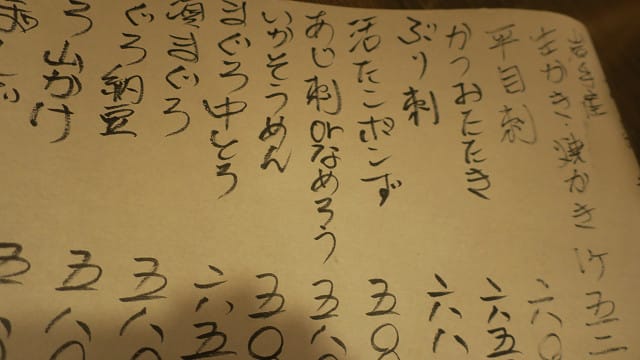 岩手産
生かき・焼かき 1ケ 五二
平目刺 六八〇
かつおたたき 六八五
ぶり刺 六八八
活たこポンず 五〇
あじ刺orなめろう 五八〇
いかそうめん 五〇
まぐろ中とろ 六八五
漬まぐろ 五八〇
ぐろ納豆 五八〇
ろ山かけ 五八